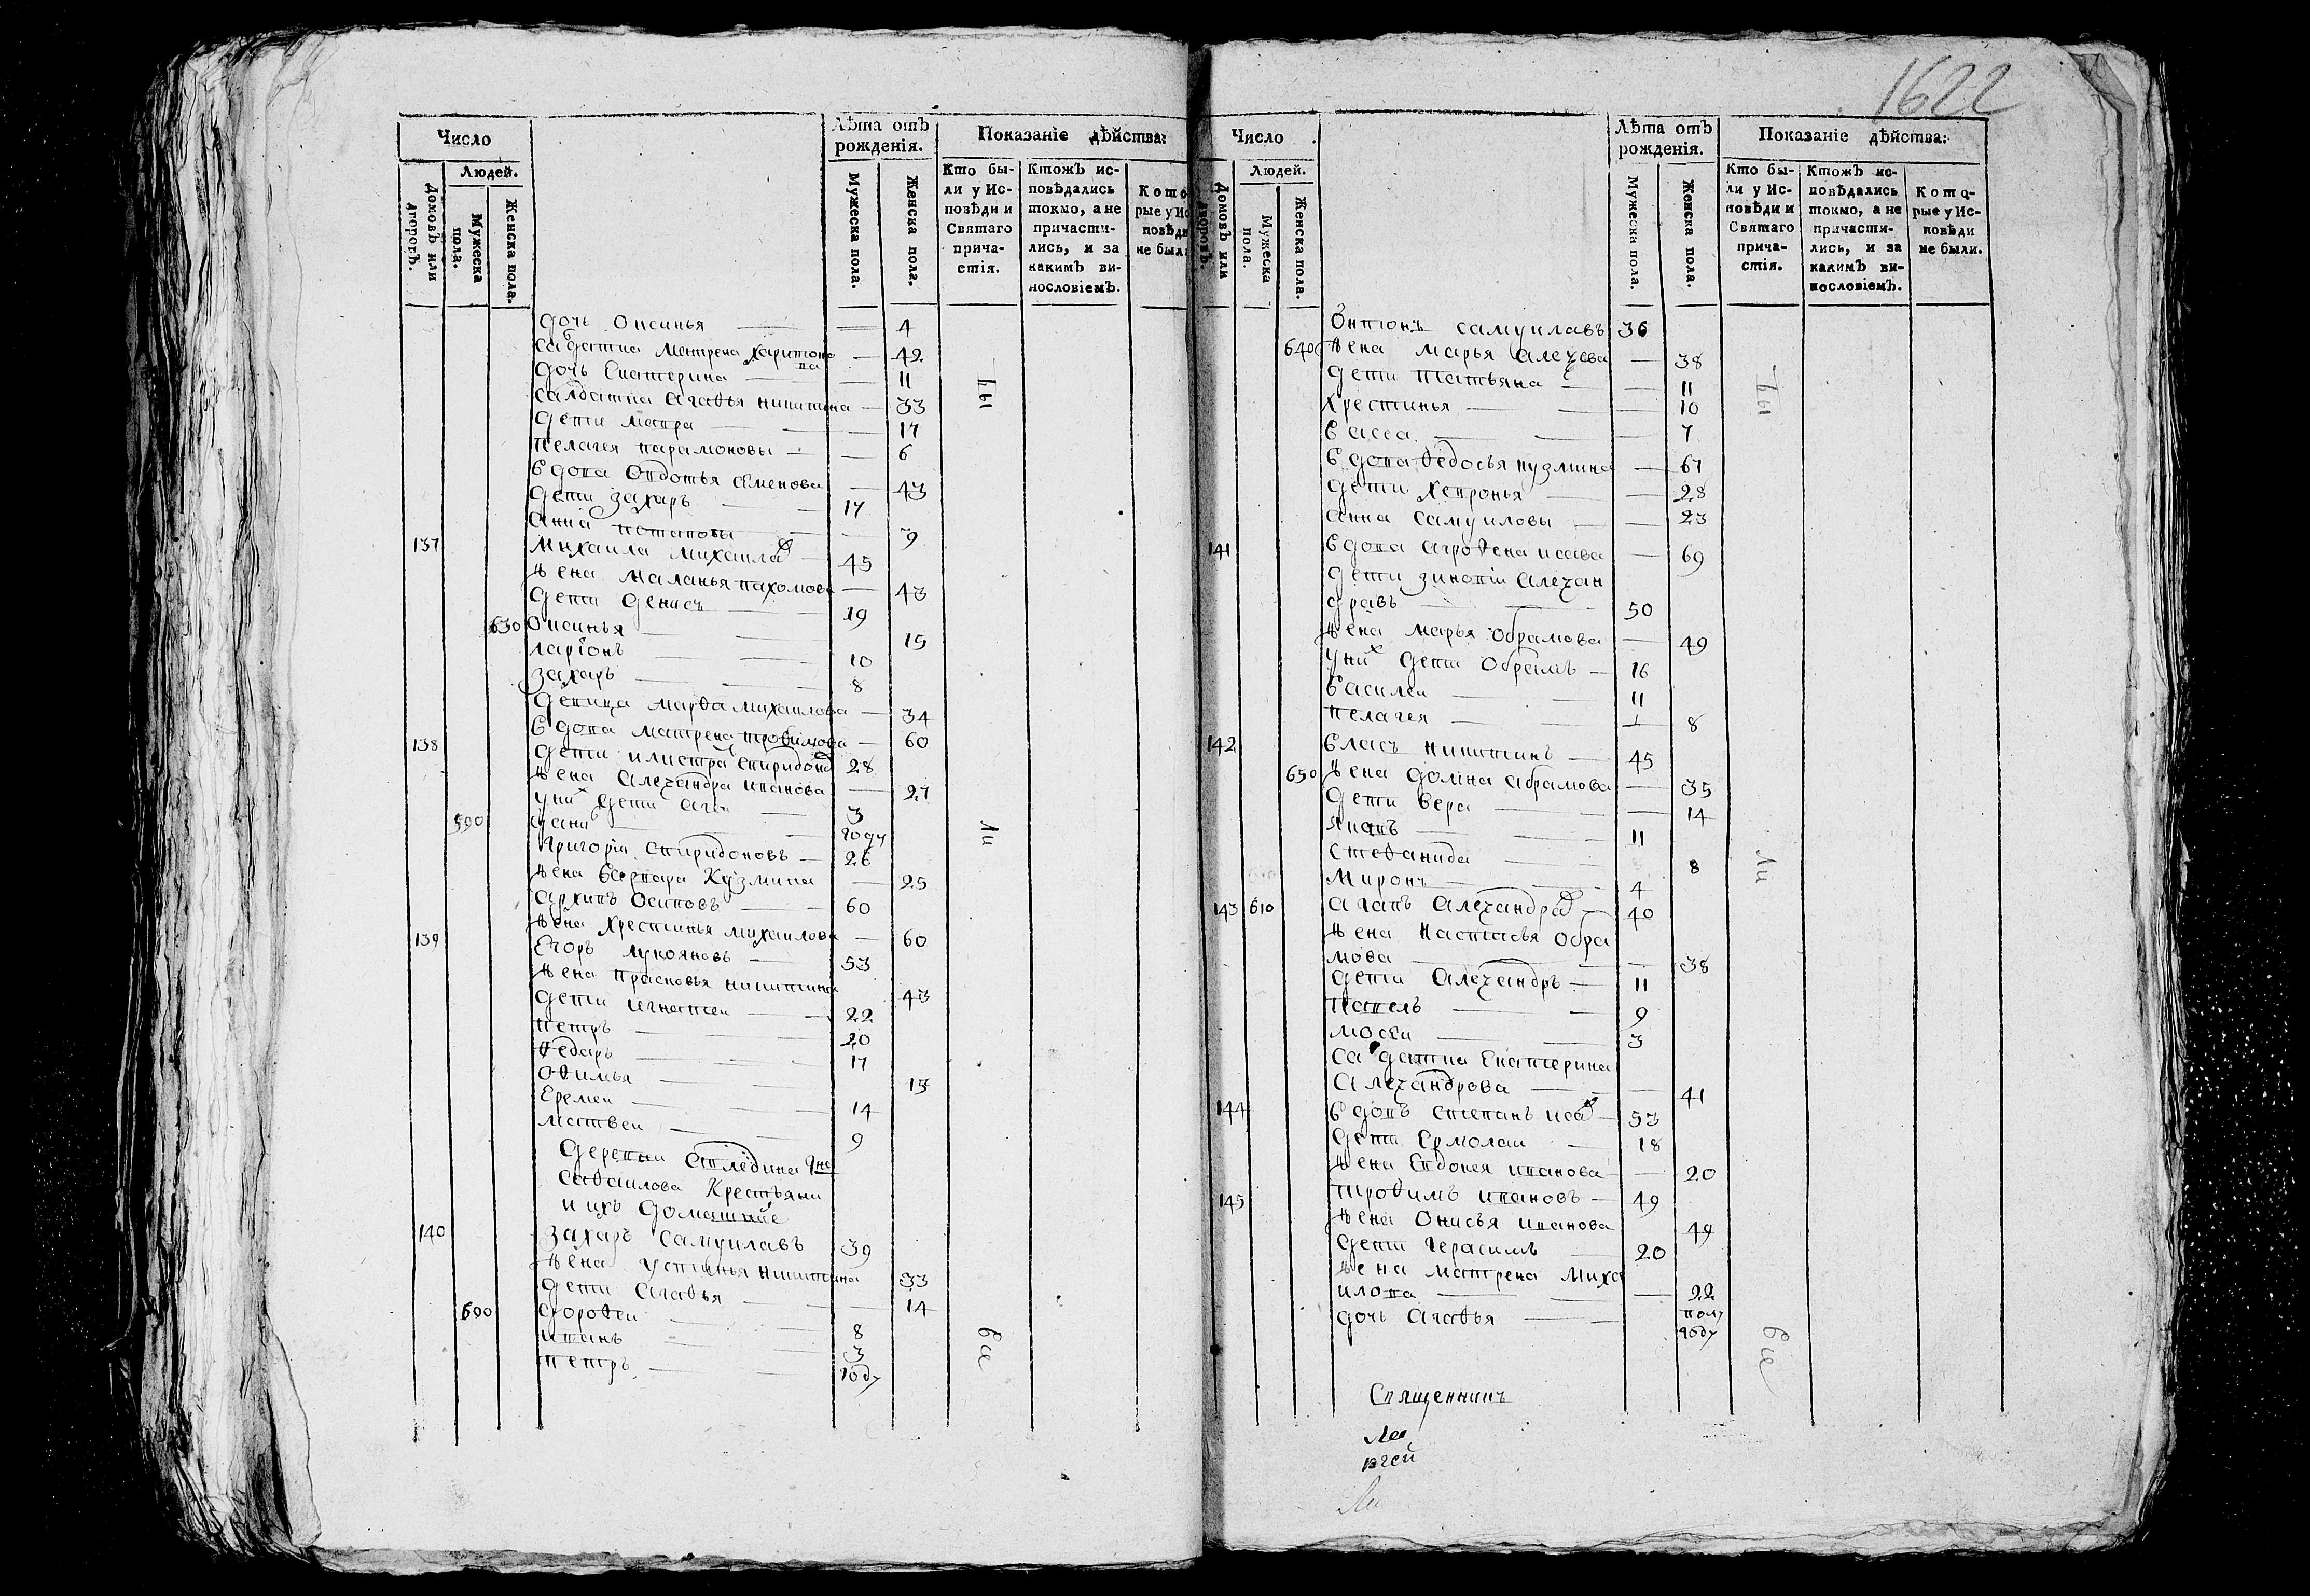 1622
Число
Лѣта отъ рожденія.
Показаніе дѣйства:
Людей.
Домовъ или дворовъ.
Мужеска пола.
Женска пола.
Мужеска пола.
Женска пола.
Кто были у Исповѣди и Святаго причастія.
Ктожъ исповѣдались токмо, а не причастились, и за какимъ винословіемъ.
Кото рые у Ис повѣди не были
дочь Оксинья 4
салдатка Матрена Харитонова 42
дочь Екатерина 11
салдатка Агафья Никитина 33
дети Мавра 17
Пелагея Парамоновы 6
вдова Овдотья Семенова 43
дети Захаръ 17
Анна Потаповы 9
137 Михаила Михаилав 45
жена Маланья Пахомова 43
дети Денисъ 19
630 Оксинья 15
Ларионъ 10
Захаръ 8
девица Марфа Михаилова 34
вдова Матрена Трофимова 60
138 дети Спиридонов 28
жена Алекандра Иванова 27
у них дети 3
590 году
Григории Спиридоновъ 26
жена Варвара Кузмина 25
Архипъ Осиповъ 60
жена Хрестинья Михаилова 60
139 Егоръ Лукояновъ 53
жена Прасковья Никитина 43
дети Игнатеи 22
Петръ 20
Федаръ 17
Офимья 15
Еремеи 14
Матвеи 9
Деревни
Сафаилова Крестьяни
и ихъ домашние
140 Захаръ Самуилавъ 39
жена Устинья Никитина 33
дети Агафья 14
600 Дорофеи 8
Иванъ 3
Петръ году
ты
ли
все
Число
Лѣта отъ рожденія.
Показаніе дѣйства:
Людей.
Домовъ или дворовъ.
Мужеска пола.
Женска пола.
Мужеска пола.
Женска пола.
Кто были у Исповѣди и Святаго причастія.
Ктожъ исповѣдались токмо, а не причастились, и за какимъ винословіемъ.
Которые у Исповѣди не были.
Онтонъ Самуилавъ 36
640 жена Марья Алекѣева 38
дети Татьяна 11
Хрестинья 10
Васса 7
вдова Федосья Кузмина 67
дети Хевронья 28
Анна Самуиловы 23
141 вдова Агрофена Исаева 69
дети Зиновіи Алекан
дравъ 50
жена Марья Обрамова 49
у них дети Обрамъ 16
Василеи 11
Пелагея 8
142 Власъ Никитинъ 45
650 жена Домна Абрамова 35
дети Вера 14
Яковъ 11
Стефанида 8
Миронъ 4
143 610 Агапъ Алекандрав 40
жена Настасья Обра
мова 38
дети Алекандръ 11
Павелъ 9
Мосеи 3
салдатка Екатерина
Алекандрова 41
144 вдовъ Степанъ Исав 53
дети Ермолаи 18
жена Евдокея Иванова 20
145 Трофимъ Ивановъ 49
жена Онисья Иванова 49
дети Герасимъ 20
жена Матрена Миха
илова 22
дочь Агафья полу
году
ты
ли
все
Священникъ